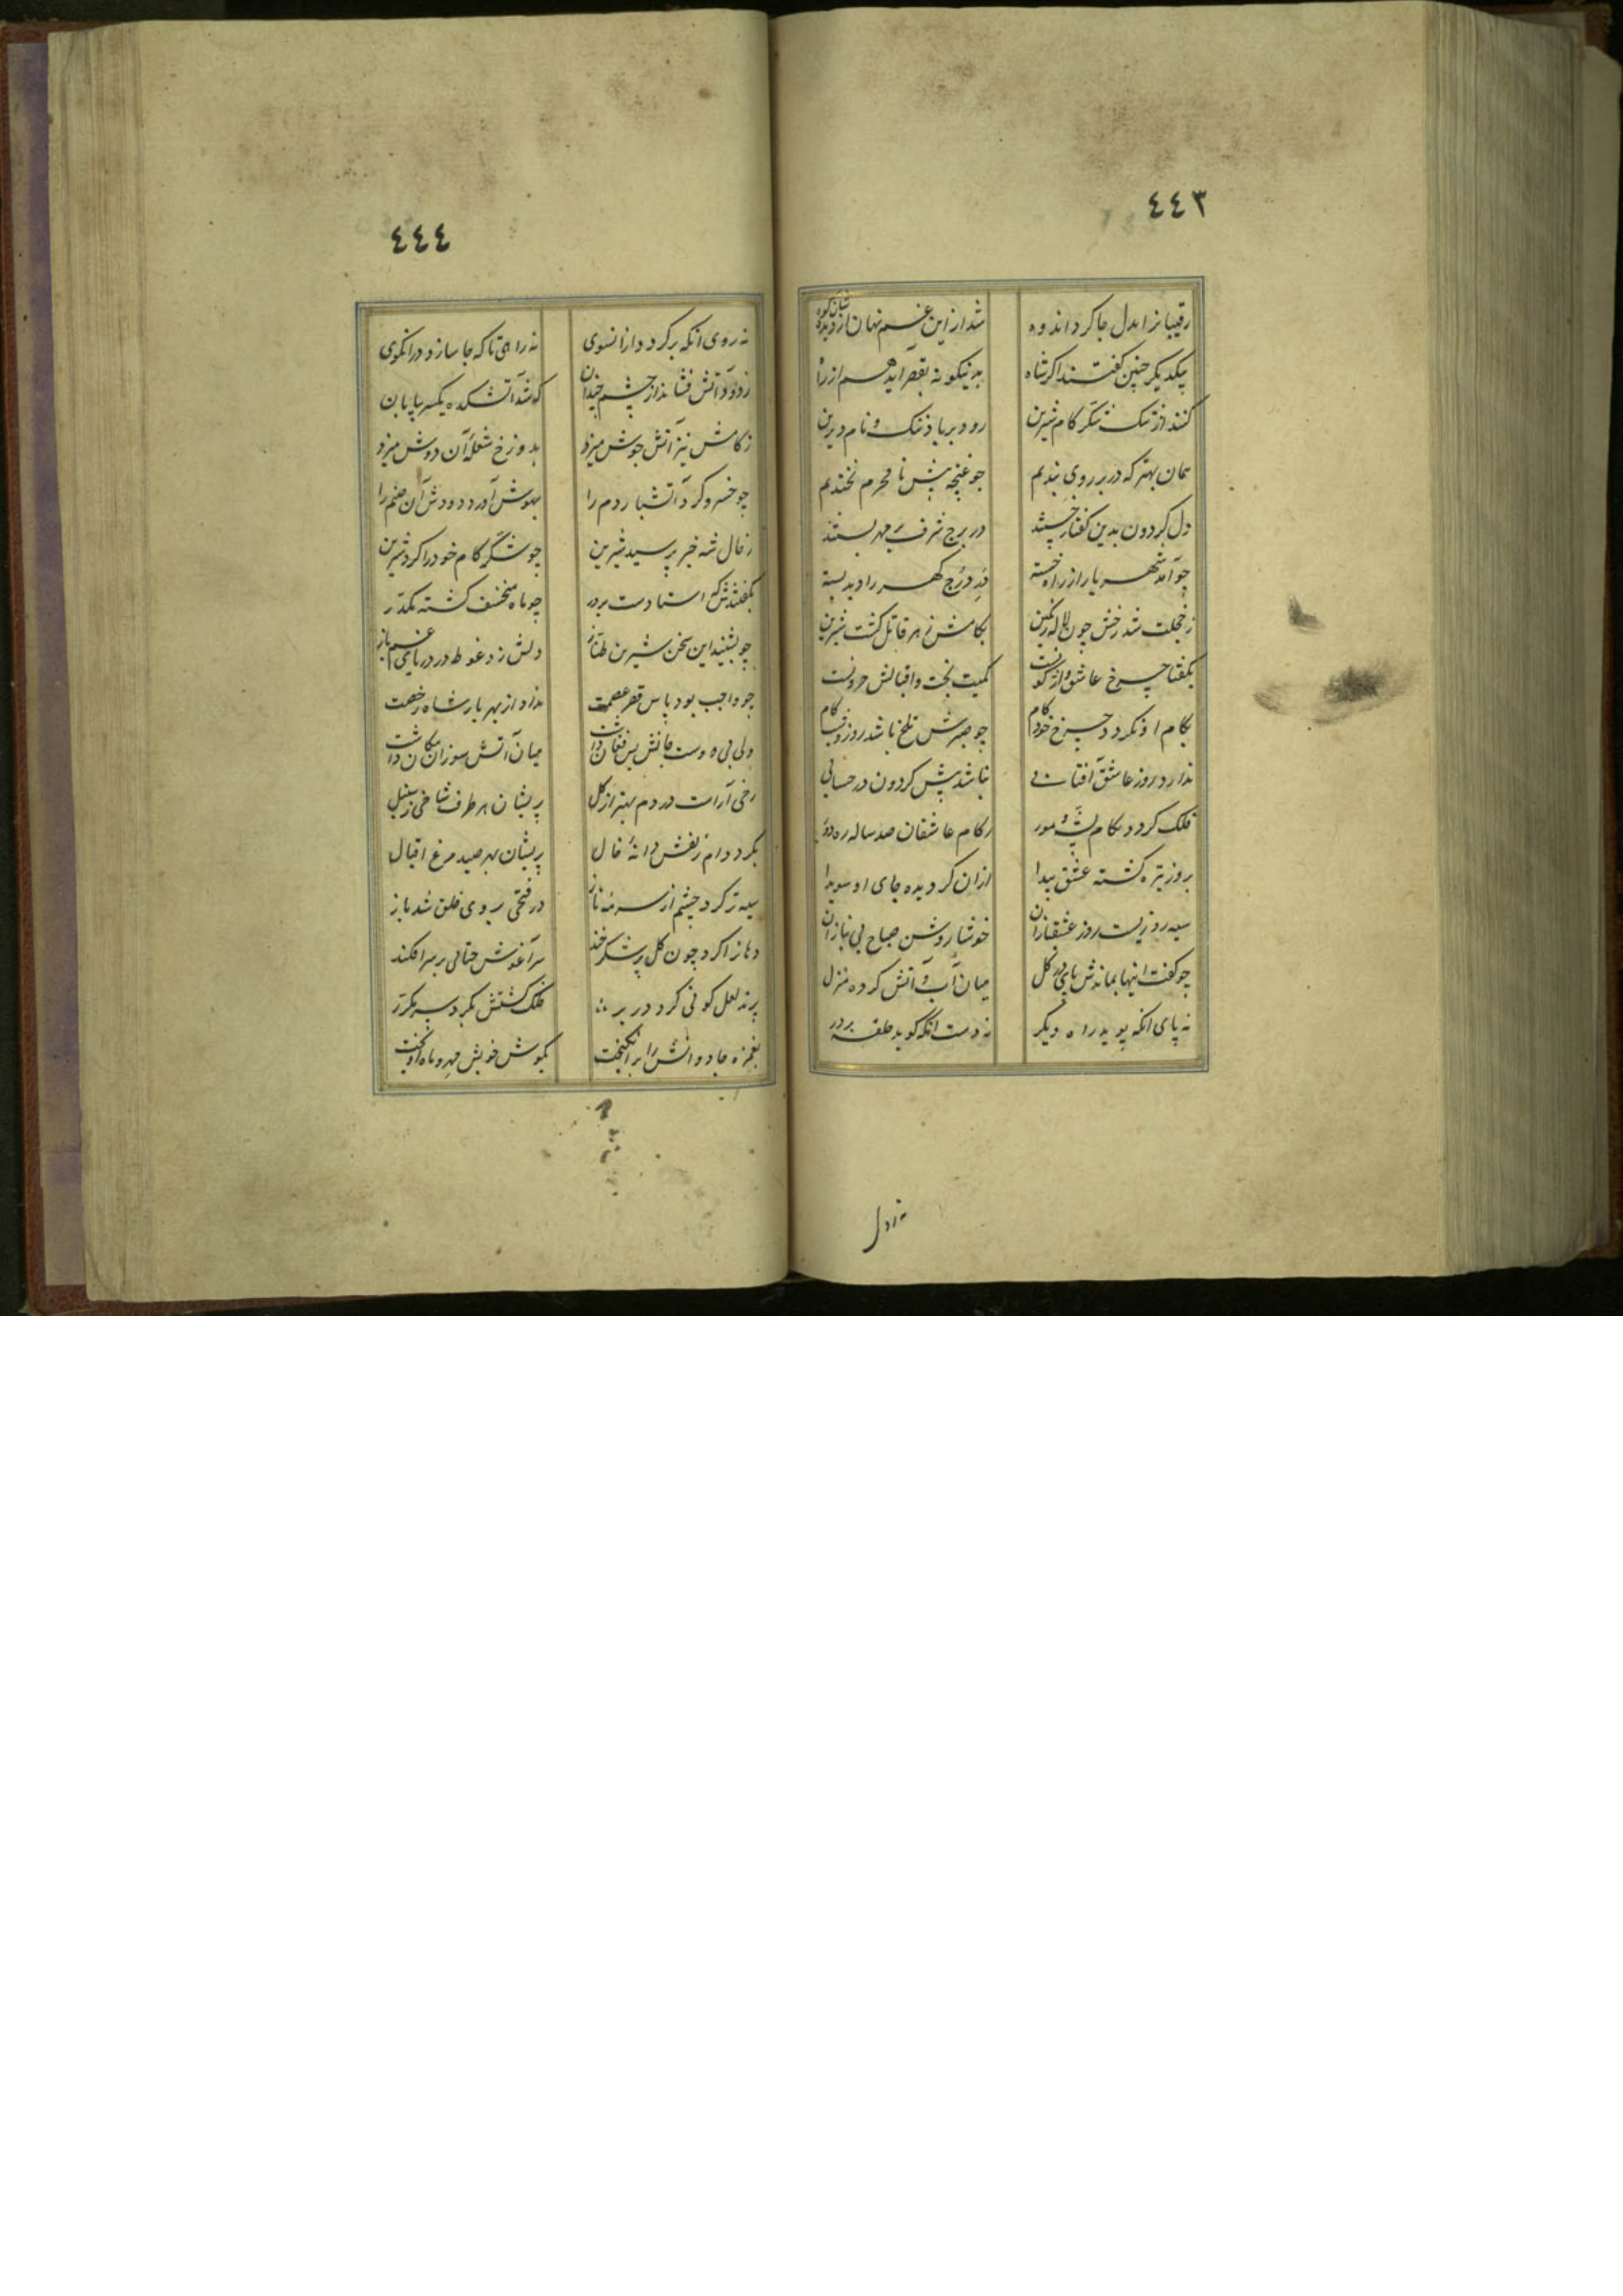 ٤٤٣
رقیبانرا بدل جا کرد اندوه شد از این غم نهان از دیده شان کوه
بیکدیکر چنین گفتند اکر شاه بدینگونه بقصر آید هم از راه
کند از تنک شکر کام شیرین رود بر باد ننک و نام دیرین
همان بهتر که در بر روی بندیم چو غنچه پیش نامحرم نخندیم
دل کردون بدین گفتار خستند در برج شرف بر مهر بستند
چو آمد شهریار از راه خسته در درج کهر را دید بسته
ز خجلت شد رخش چون لاله رنکین بکامش زهر قاتل کشت شیرین
بگفتا چرخ عاشق واژکونست کمیت بخت و اقبالش حرونست
بکام او نکردد چرخ خودکام چو صبرش تلخ باشد روز و شب کام
ندارد روز عاشق آفتابی نباشد پیش کردون در حسابی
فلک کردد بکام پشه و مور ز کام عاشقان صد ساله ره دور
بروز تیره کشته عشق پیدا ازان کردیده جای او سویدا
سیه روزیست روز عشقبازان خوشا روشن صباح بی نیازان
چو گفت اینها بماندش پای در کل میان آب و آتش کرده منزل
نه پای انکه پوید راه دیگر نه دست انکه کوبد حلقه بر در
نه اول
٤٤٤
نه روی انکه برکردد ازانسوی نه راهی تا که جا سازد درانکوی
ز دود آتش فشاند از چشم چندان که شد آتشکده یکسر بیابان
ز کامش نیز آتش جوش میزد بدوزخ شعله آن دوش میزد
چو خسرو کرد آتشبار دم را بهوش آورد دودش آن صنم را
ز حال شه خبر پرسید شیرین چو شکر کام خود را کرد شیرین
بگفتندش که استادست بر در چو ماه منخسف کشته مکدر
چو بشنید این سخن شیرین طناز دلش زد غوطه در دریای غم باز
چو واجب بود پاس قصر عصمت نداد از بهر بار شاه رخصت
ولی بی دوست جانش بس فغان داشت میان آتش سوزان مکان داشت
رخی آراست در دم بهتر از کل پریشان هر طرف شاخی ز سنبل
بکرد دام زلفش دانه خال پریشان بهر صید مرغ اقبال
سیه تر کرد چشم از سرمه ناز در فتحی بروی خلق شد باز
دهانرا کرد چون کل پر شکرخند سرآغوش حنائی بر سر افکند
پرند لعل کونی کرد در بر فلک کشتش بکرد سر مکرر
بغمزه جادوانش را برانکیخت بکوش خویش مهر و ماه آویخت